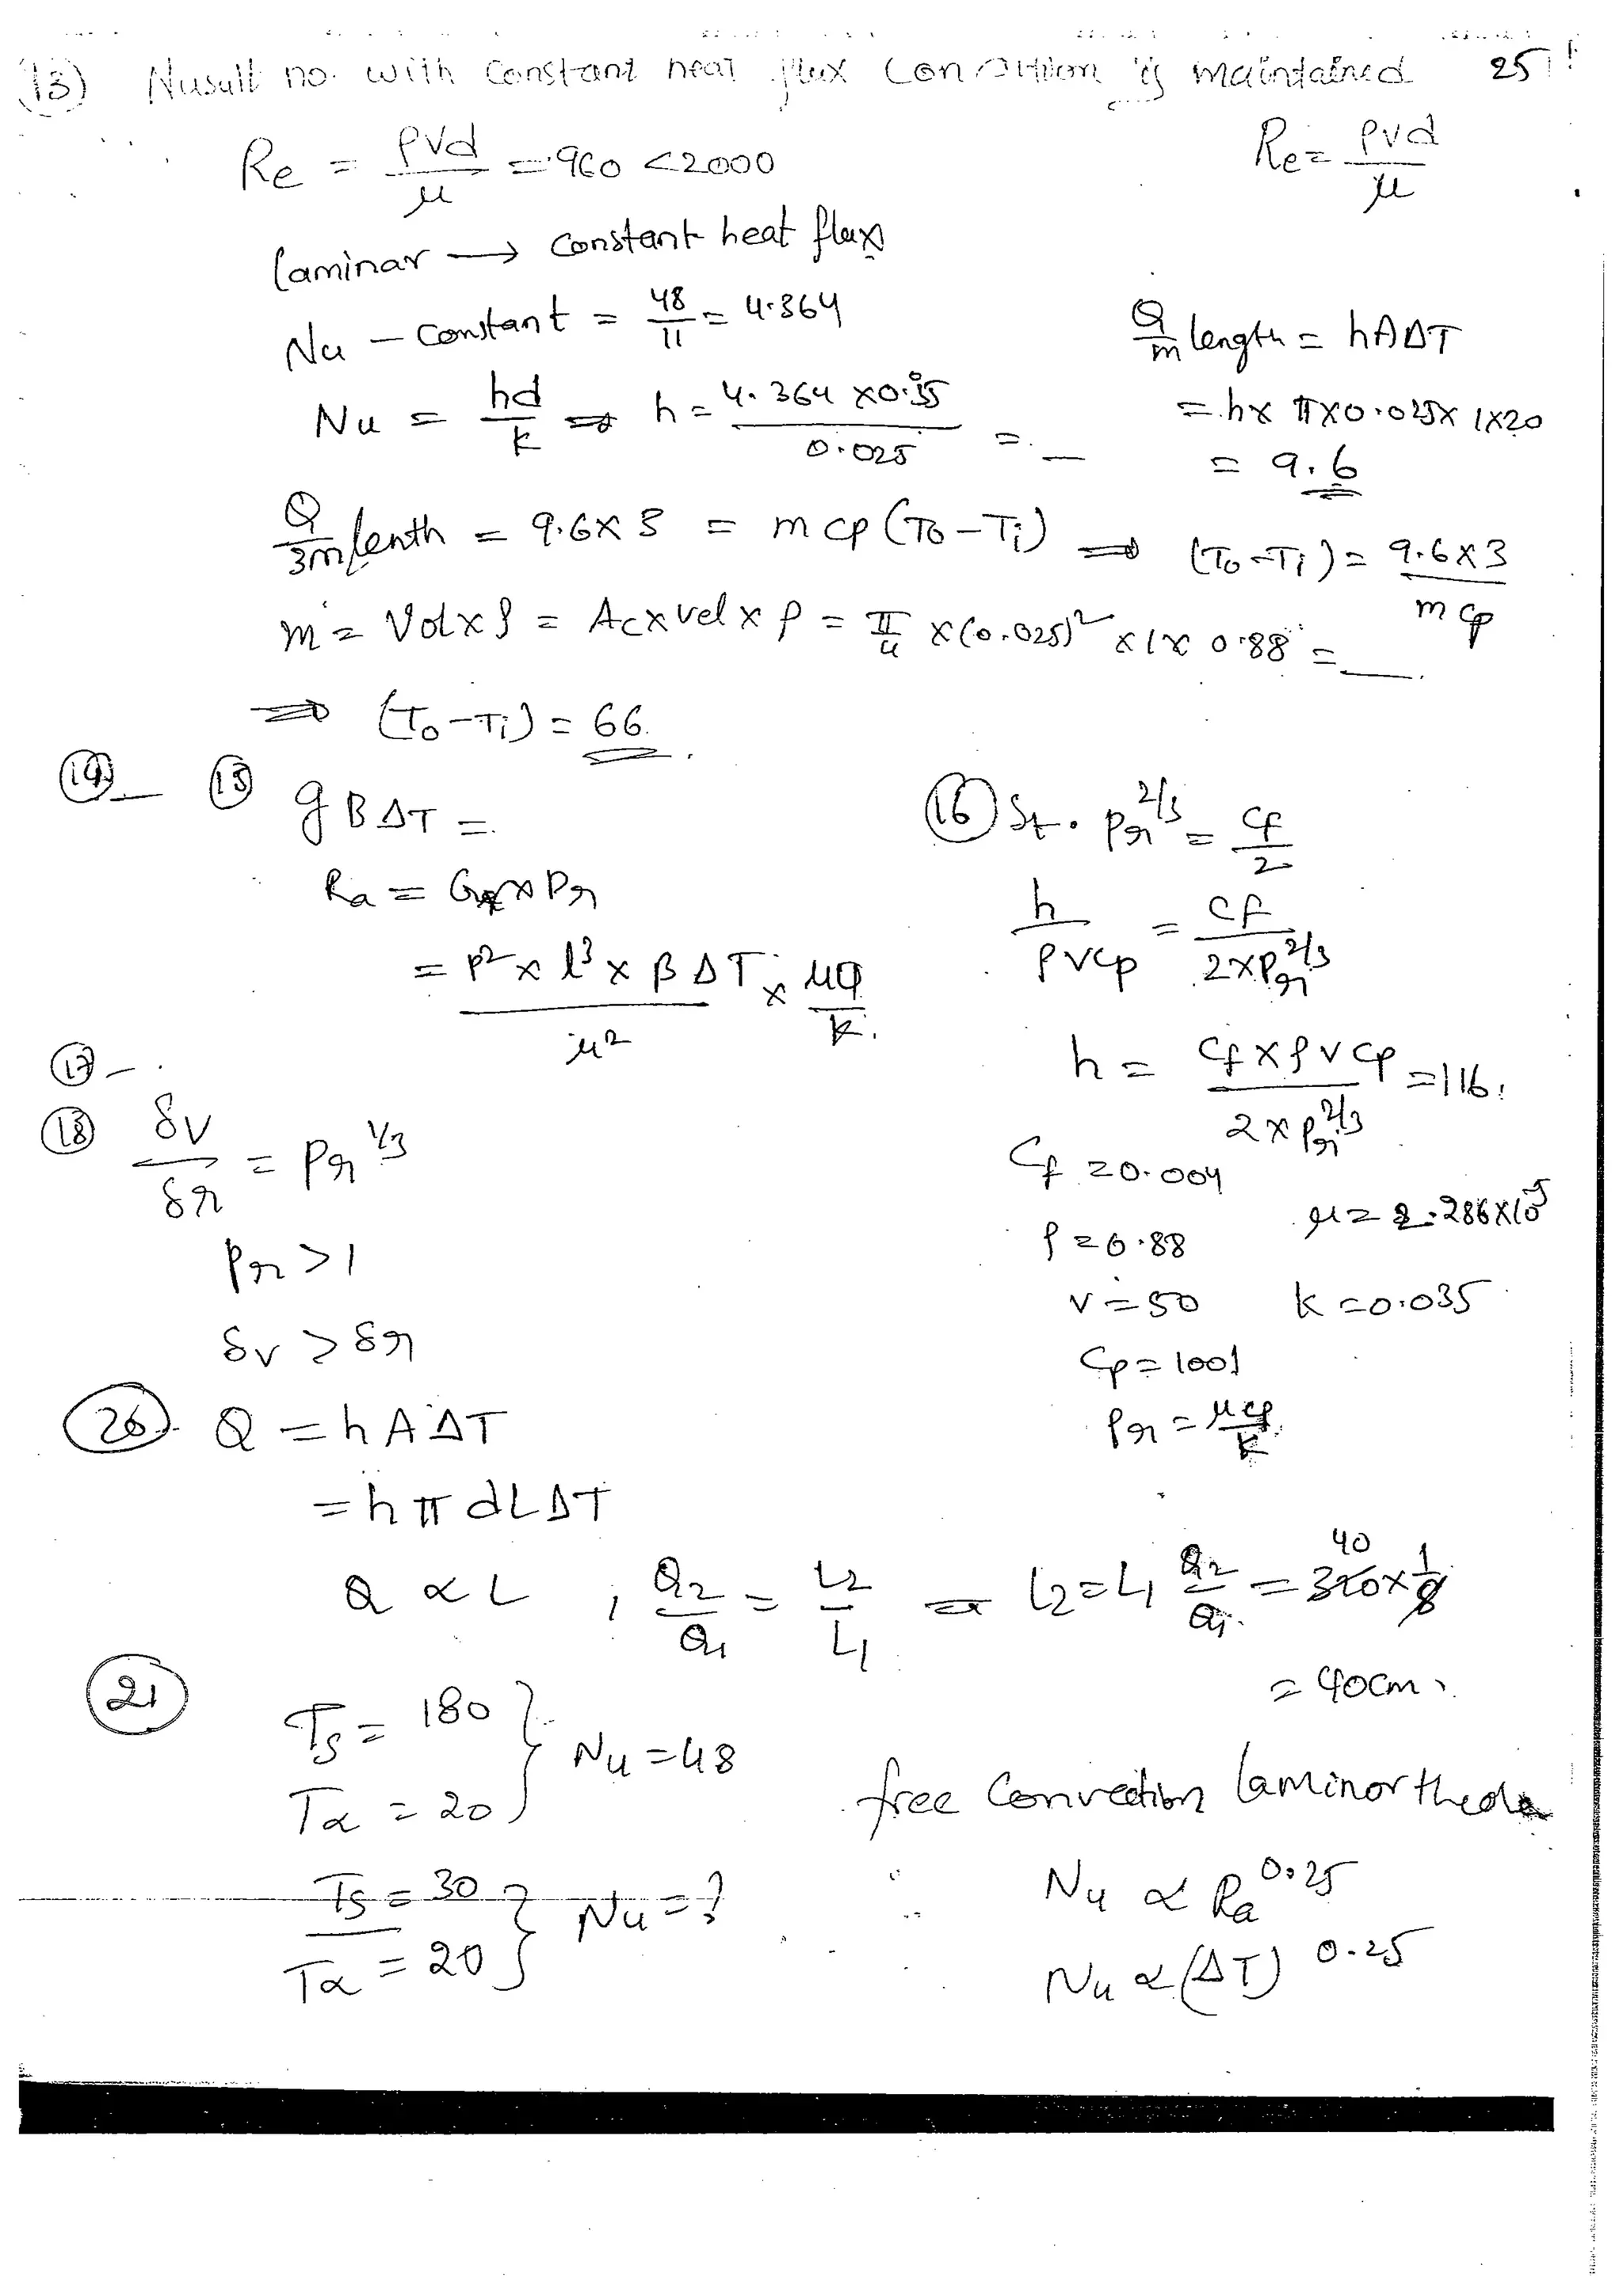 (13) Nusult no. with Constant heat flux Condition is maintained 25
Re = ρVd/μ = 960 <2000
Re = ρvd/μ
laminar → constant heat flux
Nu – constant = 48/11 = 4.364
Q/m length = hA∆T
Nu = hd/k ⇒ h = 4.364 x0.035/0.025 = _
= hx πx0.025x 1x20
= 9.6
Q/3m lenth = 9.6x3 = m cp (To – Ti) ⇒ (To – Ti) = 9.6x3/m cp
ṁ = Vol x ρ = Ac x vel x ρ = π/4 x (0.025)² x 1x 0.88 = _
⇒ (To – Ti) = 66.
(14) _ (15) gB∆T =
Ra = Gr x Pr
= ρ² x l³ x β∆T/μ² x μcp/k.
(16) St. Pr^2/3 = cf/2
h/ρvcp = cf/2xPr^2/3
h = Cf x ρvcp/2 x Pr^2/3 = 116.
(17) – .
(18) δv/δr = Pr^1/3
Pr > 1
δv > δr
Cf = 0.004
ρ = 0.88 μ = 2.286x10⁵
v = 50 k = 0.035
Cp = 1001
Pr = μcp/k
(20). Q = hA∆T
= hπdL∆T
Q α L , Q2/Q1 = L2/L1 ⇒ L2 = L1 Q2/Q1 = 320 x 1/8 40
= 40cm.
(21) Ts = 180
Tα = 20 } Nu = 48
free Convection laminar
Ts = 30
Tα = 20 } Nu = ?
Nu α Ra^0.25
Nu α (∆T)^0.25